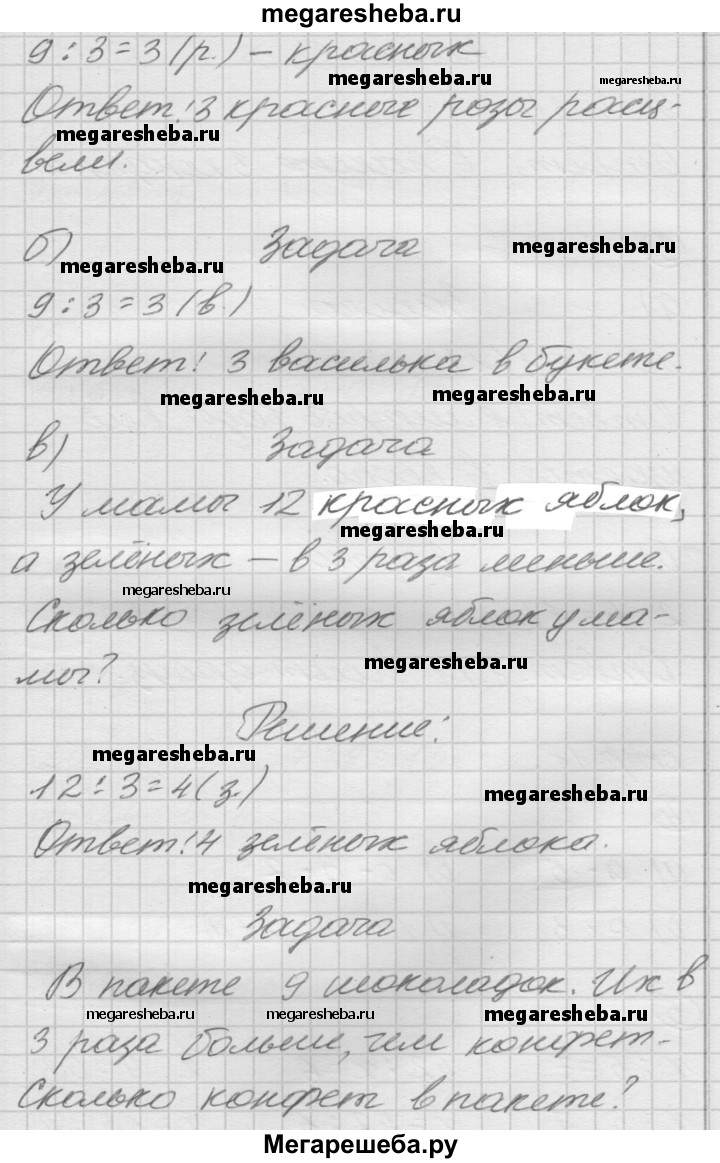 megaresheba.ru
9 : 3 = 3 (р.) – красных
megaresheba.ru megaresheba.ru
Ответ: 3 красные розы расц-
megaresheba.ru
вели.
б) Задача megaresheba.ru
megaresheba.ru
9 : 3 = 3 (в.)
Ответ: 3 василька в букете.
megaresheba.ru megaresheba.ru
в) Задача
У мамы 12 красных яблок,
megaresheba.ru
а зелёных – в 3 раза меньше.
megaresheba.ru
Сколько зелёных яблок у ма-
мы? megaresheba.ru
Решение:
megaresheba.ru
12 : 3 = 4 (з.) megaresheba.ru
Ответ: 4 зелёных яблока.
megaresheba.ru
Задача
В пакете 9 шоколадок. Их в
megaresheba.ru megaresheba.ru megaresheba.ru
3 раза больше, чем конфет.
Сколько конфет в пакете?
Мегарешеба.ру